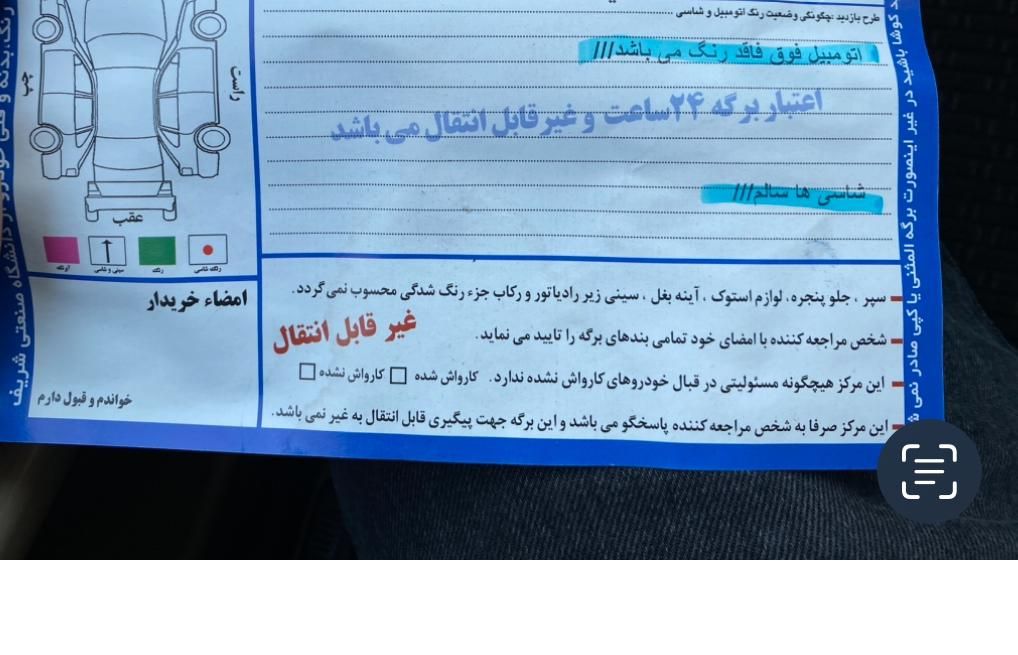 طرح بازدید :چگونگی وضعیت رنگ اتومبیل و شاسی
اتومبیل فوق فاقد رنگ می باشد///
اعتبار برگه ۲۴ساعت و غیرقابل انتقال می باشد
شاسی ها سالم///
راست
چپ
عقب
رنگ شاسی
رنگ
سینی و شاسی
امضاء خریدار
خواندم و قبول دارم
سپر ، جلو پنجره، لوازم استوک ، آینه بغل ، سینی زیر رادیاتور و رکاب جزء رنگ شدگی محسوب نمی گردد.
شخص مراجعه کننده با امضای خود تمامی بندهای برگه را تایید می نماید.
غیر قابل انتقال
این مرکز هیچگونه مسئولیتی در قبال خودروهای کارواش نشده ندارد. کارواش شده □ کارواش نشده □
این مرکز صرفا به شخص مراجعه کننده پاسخگو می باشد و این برگه جهت پیگیری قابل انتقال به غیر نمی باشد.
کوشا باشید در غیر اینصورت برگه المثنی یا کپی صادر نمی
رنگ،بدنه و فنی خودرو
دانشگاه صنعتی شریف